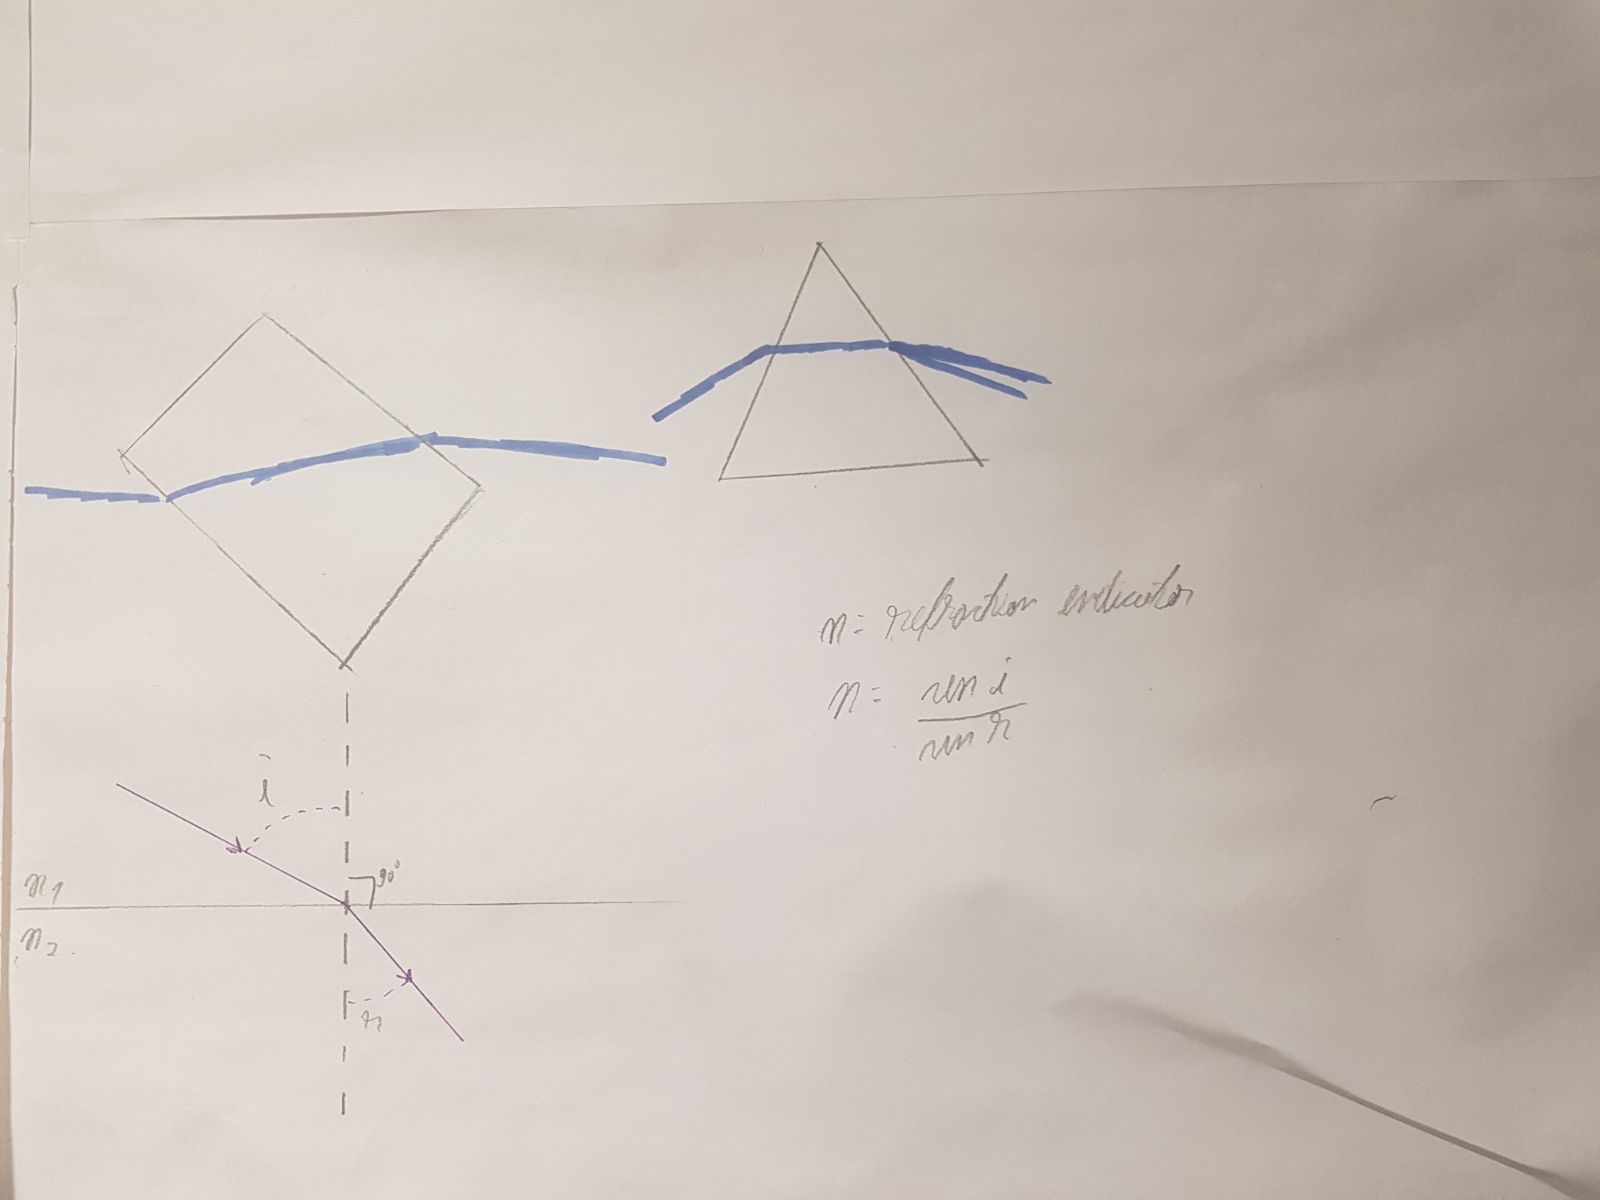 n = refraction indicator
n = sin i
sin r
i
90°
n1
n2
r